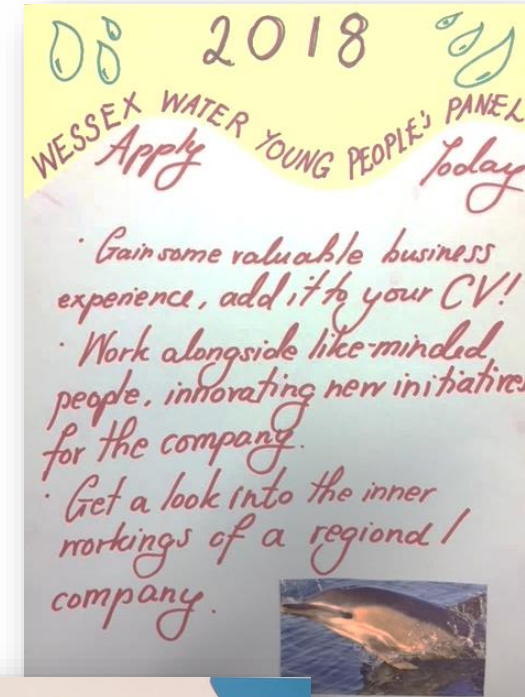 2018
WESSEX WATER YOUNG PEOPLE'S PANEL
Apply Today
· Gain some valuable business
experience, add it to your CV!
· Work alongside like-minded
people, innovating new initiatives
for the company.
· Get a look into the inner
workings of a regional
company.